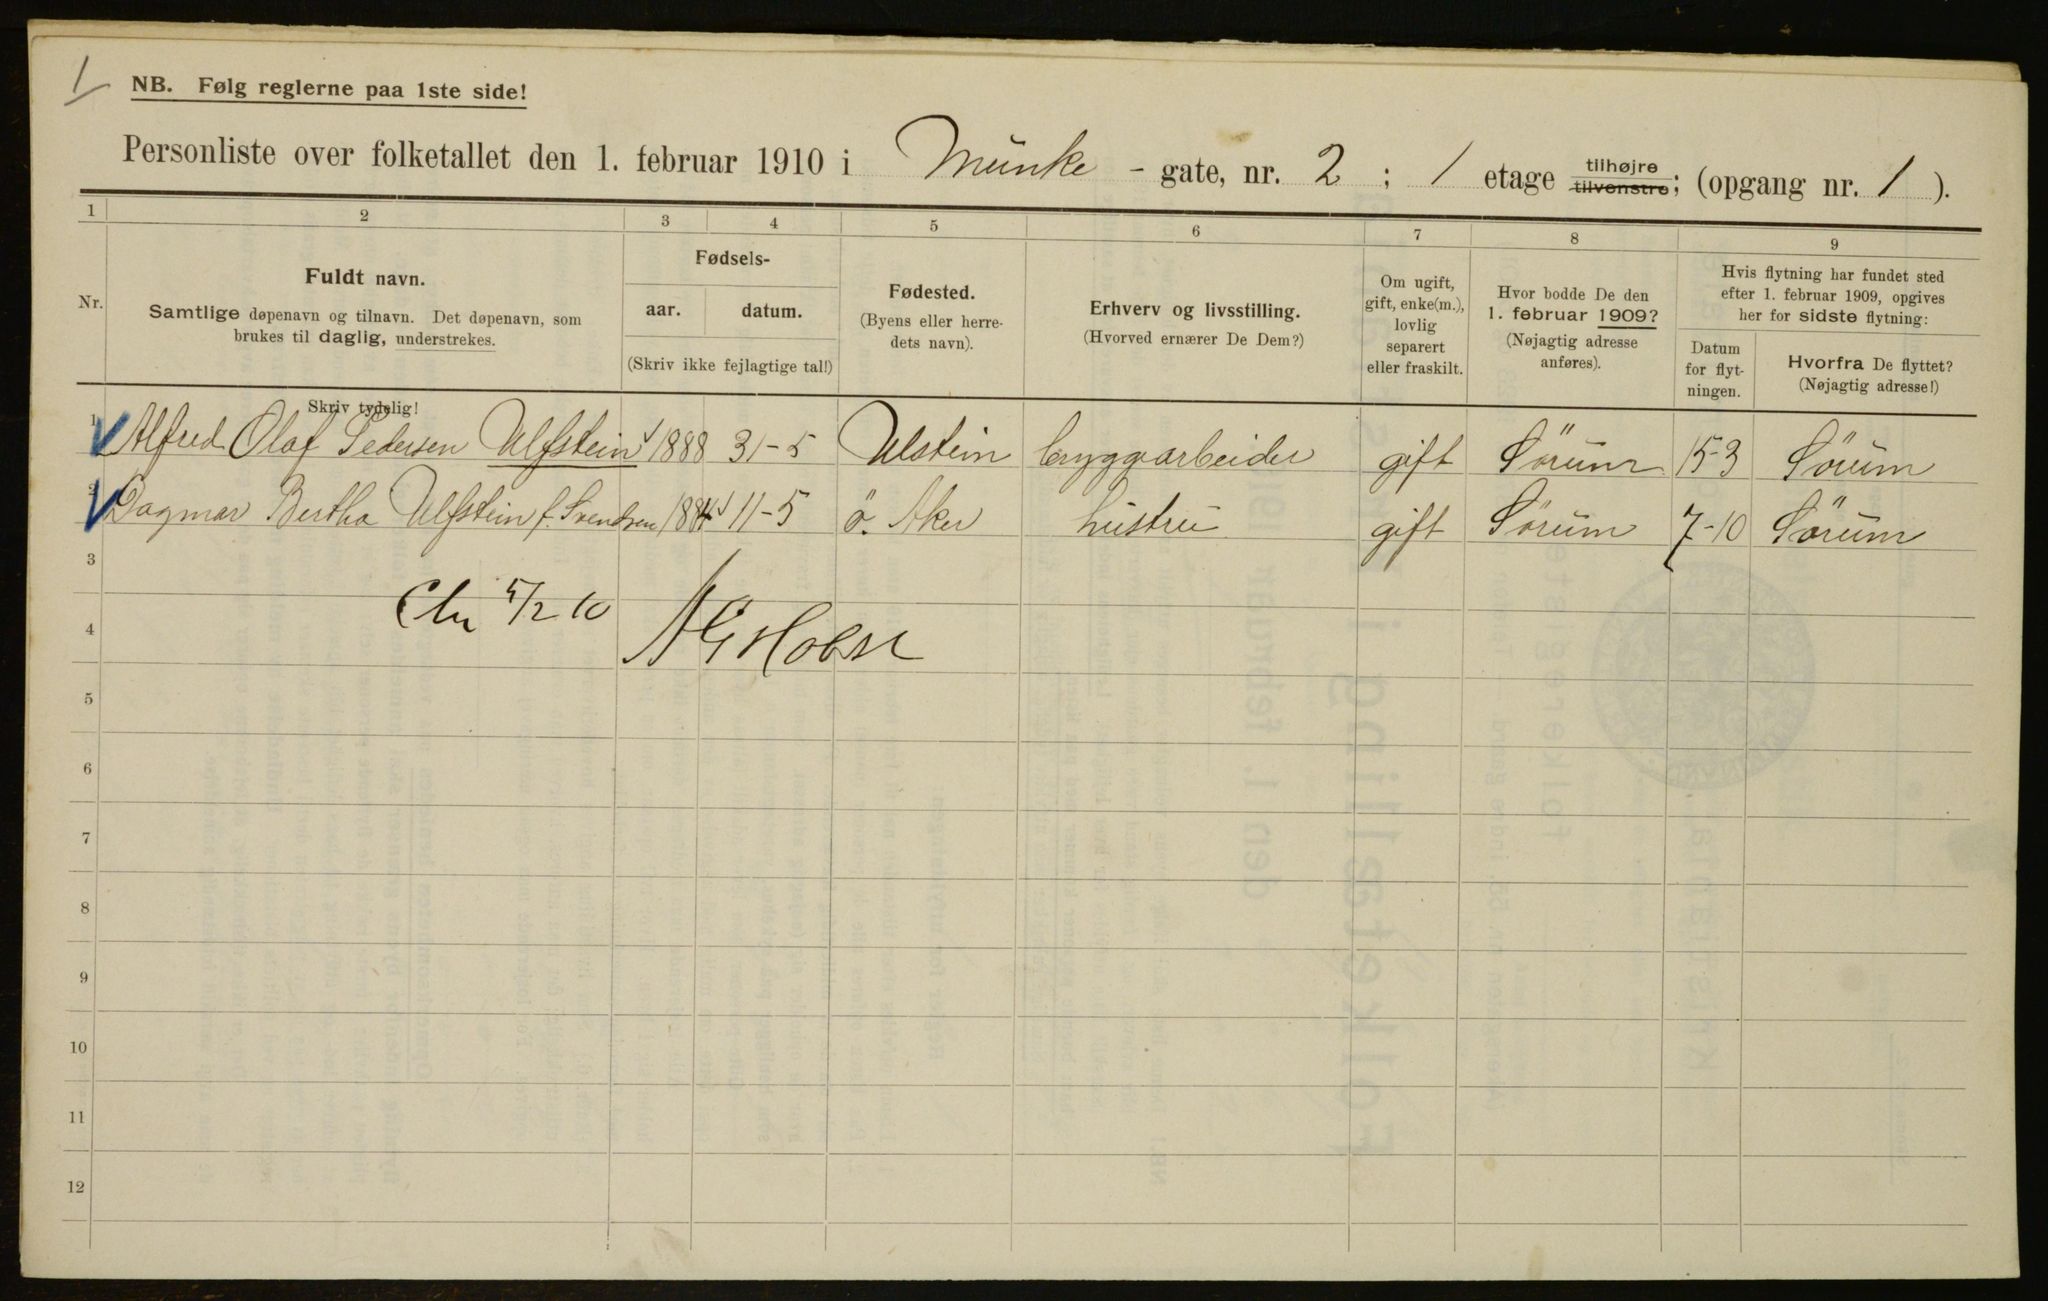 1
NB. Følg reglerne paa 1ste side!
Personliste over folketallet den 1. februar 1910 i Munke - gate, nr. 2 ; 1 etage tilhøjre tilvenstre; (opgang nr. 1 ).
1 2 3 4 5 6 7 8 9
Nr.
Fuldt navn.
Samtlige døpenavn og tilnavn. Det døpenavn, som
brukes til daglig, understrekes.
Skriv tydelig!
Fødsels-
aar. datum.
(Skriv ikke fejlagtige tal!)
Fødested.
(Byens eller herre-
dets navn).
Erhverv og livsstilling.
(Hvorved ernærer De Dem?)
Om ugift,
gift, enke(m.),
lovlig
separert
eller fraskilt.
Hvor bodde De den
1. februar 1909?
(Nøjagtig adresse
anføres).
Hvis flytning har fundet sted
efter 1. februar 1909, opgives
her for sidste flytning:
Datum
for flyt-
ningen.
Hvorfra De flyttet?
(Nøjagtig adresse!)
1 Alfred Olaf Pedersen Ulfstein 1888 31-5 Ulstein bryggarbeider gift Sörum 15-3 Sörum
2 Dagmar Bertha Ulfstein f. Svendsen 1884 11-5 ö. Aker hustru gift Sörum 7-10 Sörum
3
Chr 5/2 10
4
5
6
7
8
9
10
11
12